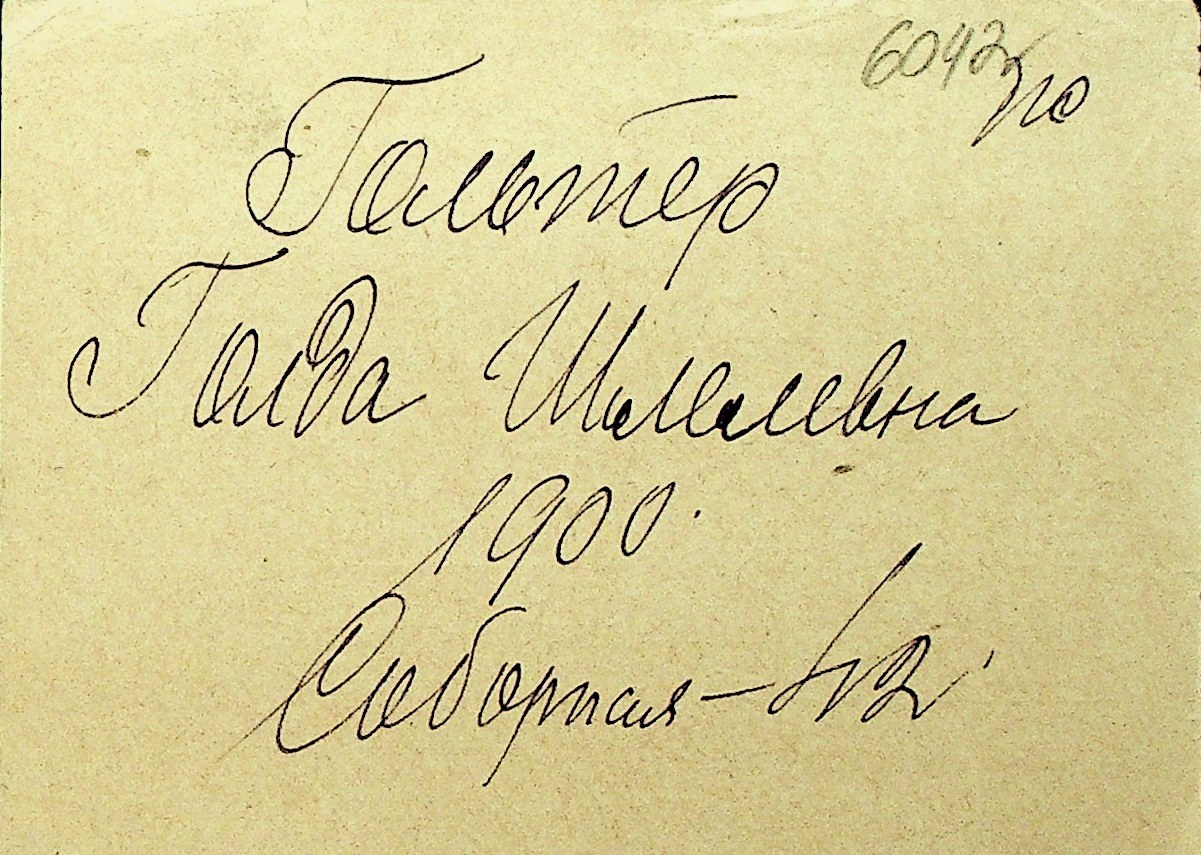 6042
Гальтер
Голда Шмилевна
1900.
Соборная –